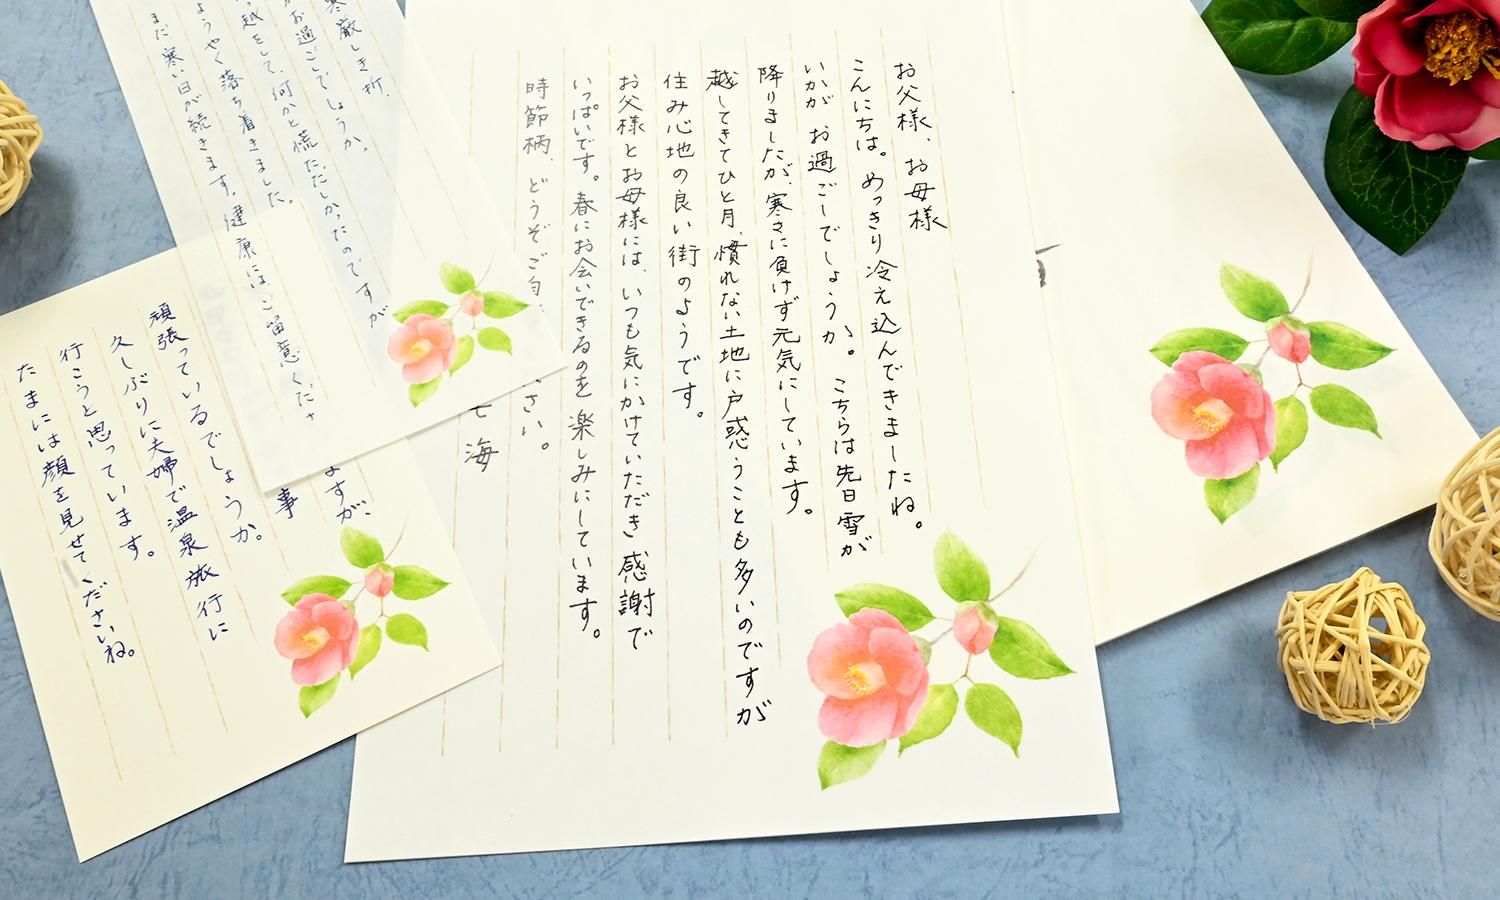 お父様、お母様
こんにちは。めっきり冷え込んできましたね。
いかがお過ごしでしょうか。こちらは先日雪が
降りましたが、寒さに負けず元気にしています。
越してきてひと月、慣れない土地に戸惑うことも多いのですが
住み心地の良い街のようです。
お父様とお母様には、いつも気にかけていただき感謝で
いっぱいです。春にお会いできるのを楽しみにしています。
時節柄、どうぞご自
さい。
七海
寒厳しき折、
お過ごしでしょうか。
越をして、何かと慌ただしかったのですが
ようやく落ち着きました。
まだ寒い日が続きます。健康にはご留意くださ
ますが、
事
頑張っているでしょうか。
久しぶりに夫婦で温泉旅行に
行こうと思っています。
たまには顔を見せてくださいね。